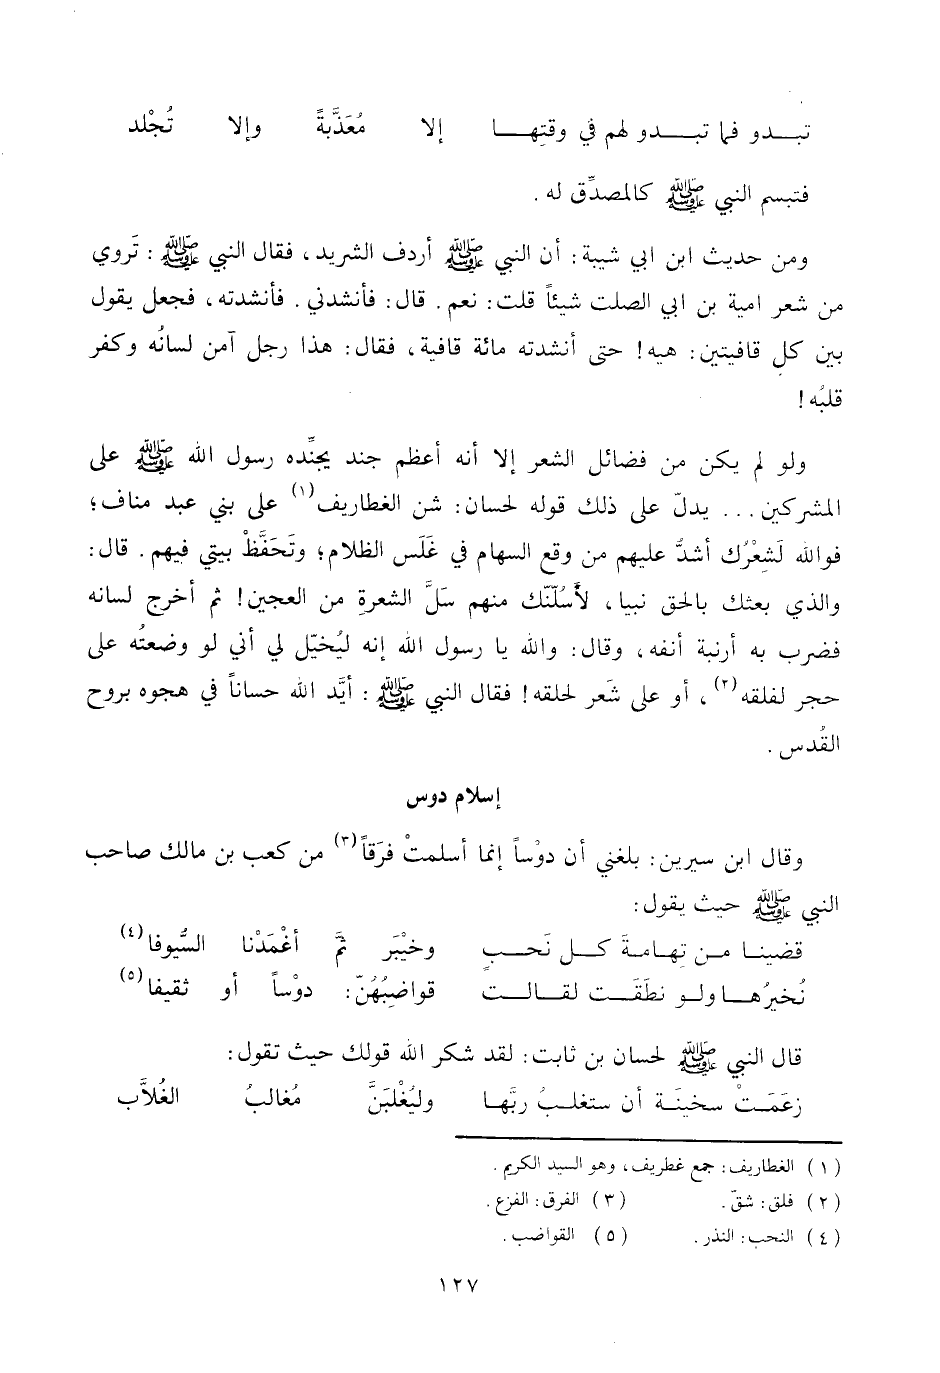 تبـــدو فما تبـــدو لهم في وقتِهـــا إلا مُعَذَّبةً وإلا تُجْلد
فتبسم النبي ﷺ كالمصدِّق له .
ومن حديث ابن ابي شيبة : أن النبي ﷺ أردف الشريد ، فقال النبي ﷺ : تَروي
من شعر امية بن ابي الصلت شيئاً قلت : نعم . قال : فأنشدني . فأنشدته ، فجعل يقول
بين كل قافيتين : هيه ! حتى أنشدته مائة قافية ، فقال : هذا رجل آمن لسانُه وكفر
قلبُه !
ولو لم يكن من فضائل الشعر إلا أنه أعظم جند يجنِّده رسول الله ﷺ على
المشركين ... يدلّ على ذلك قوله لحسان : شن الغطاريف(١) على بني عبد مناف ؛
فوالله لَشِعْرُك أشدُّ عليهم من وقع السهام في غَلَس الظلام ؛ وتَحَفَّظْ بيتي فيهم . قال :
والذي بعثك بالحق نبيا ، لأسُلّنّك منهم سَلَّ الشعرةِ من العجين ! ثم أخرج لسانه
فضرب به أرنبة أنفه ، وقال : والله يا رسول الله إنه ليُخيّل لي أني لو وضعتُه على
حجر لفلقه(٢) ، أو على شَعر لحلقه ! فقال النبي ﷺ : أيَّد الله حساناً في هجوه بروح
القُدس .
إسلام دوس
وقال ابن سيرين : بلغني أن دوْساً إنما أسلمتْ فرَقاً(٣) من كعب بن مالك صاحب
النبي ﷺ حيث يقول :
قضينـا مـن تِهـامـةَ كـل نَحـبٍ وخيْبَر ثمَّ أغْمَدْنا السُّيوفا(٤)
نُخيرُهـا ولـو نطَقَـت لقـالـت قواضِبُهُنّ : دوْساً أو ثقيفا(٥)
قال النبي ﷺ لحسان بن ثابت : لقد شكر الله قولك حيث تقول :
زعَمَـتْ سخينَـة أن ستغلـبُ ربَّهـا وليُغْلبَنَّ مُغالبُ الغُلاَّب
(١) الغطاريف : جمع غطريف ، وهو السيد الكريم .
(٢) فلق : شقّ . (٣) الفرق : الفزع .
(٤) النحب : النذر . (٥) القواضب .
١٢٧